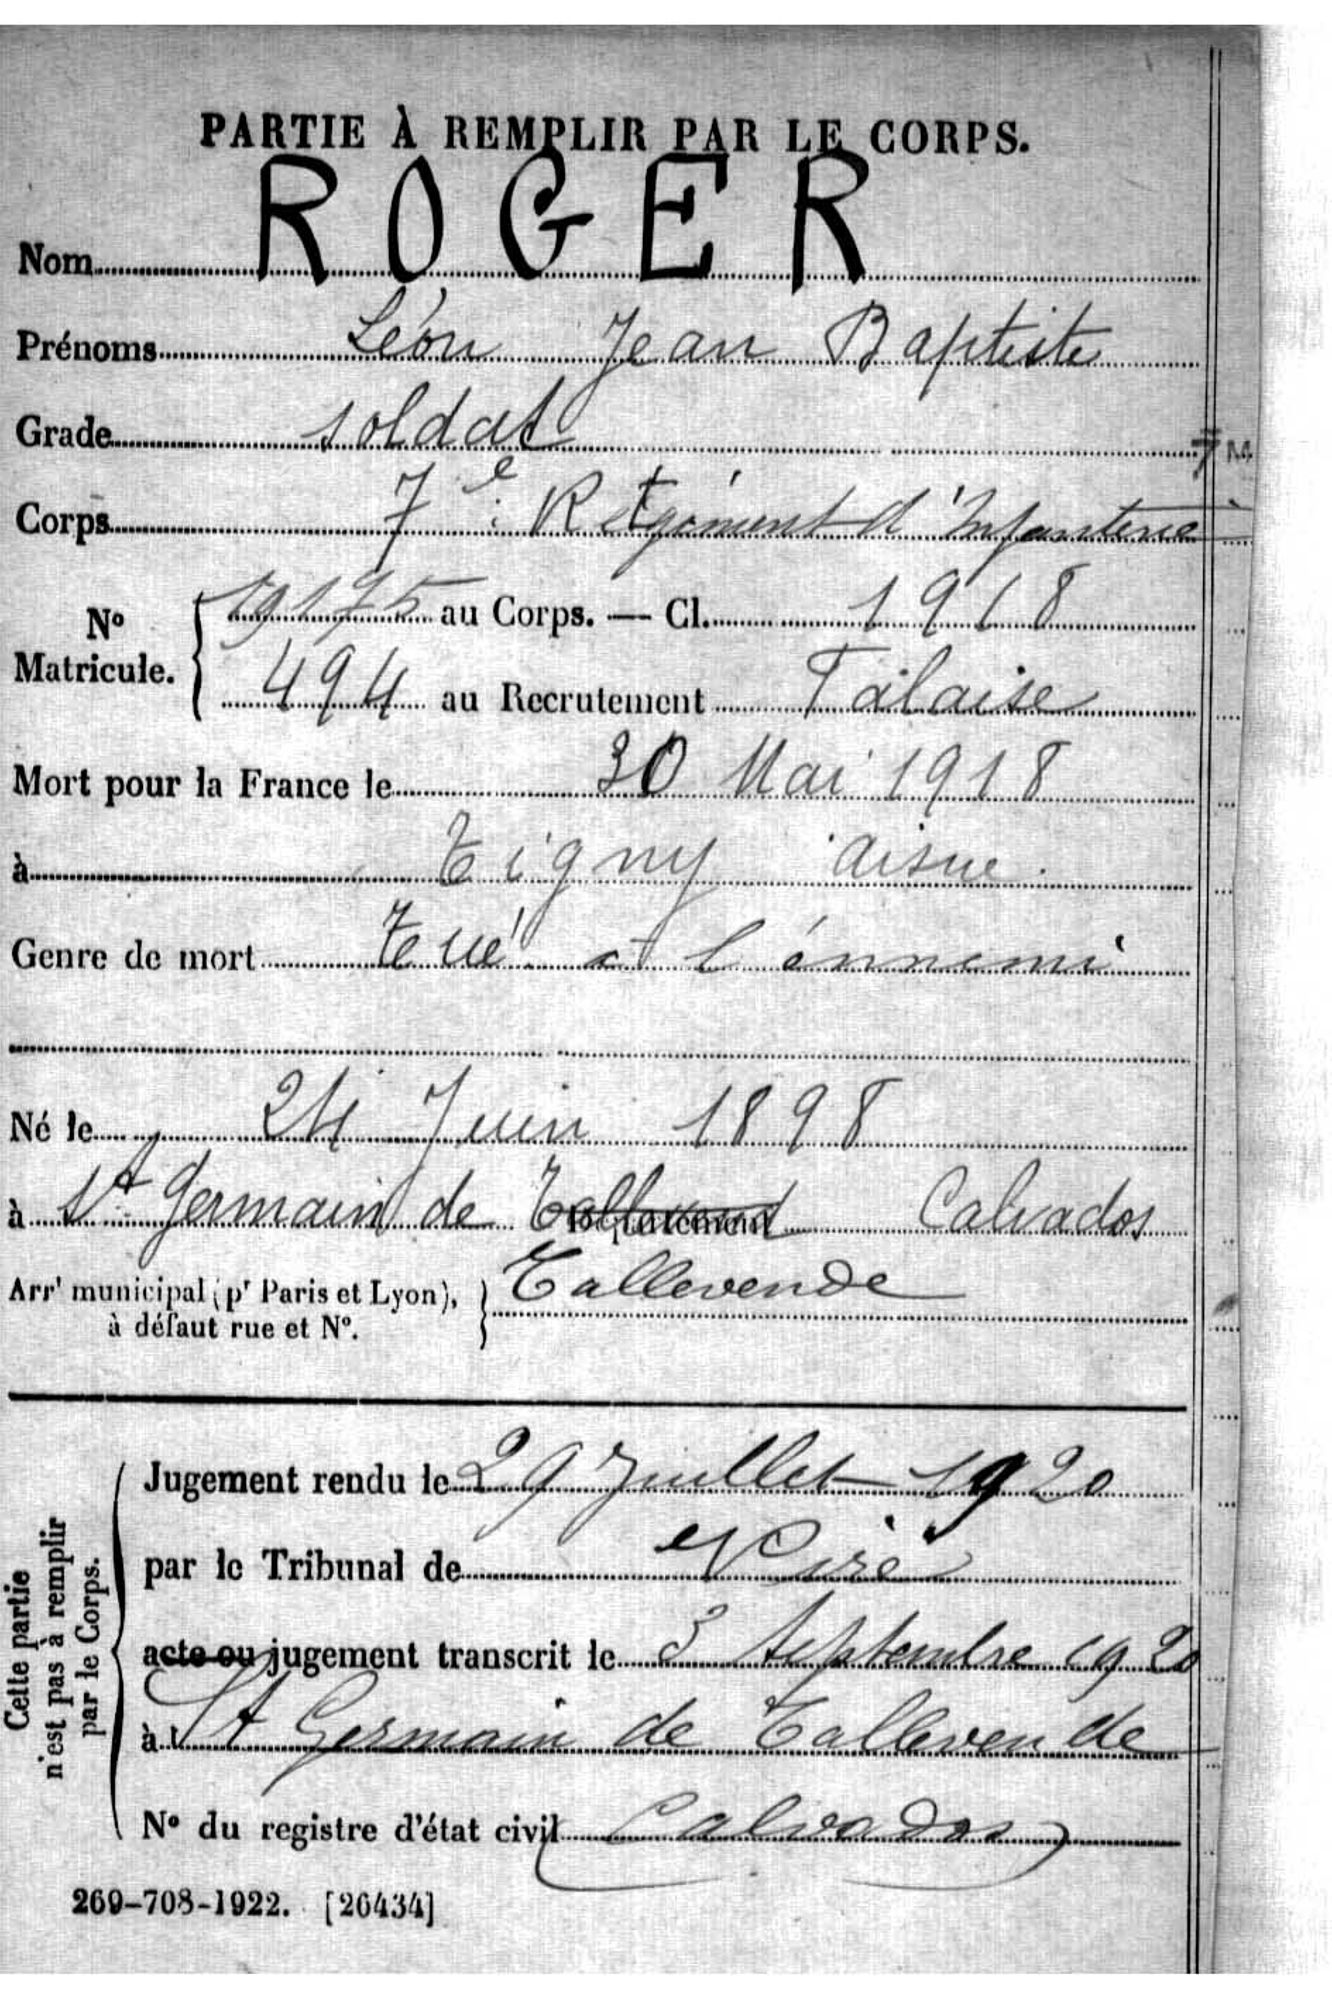 PARTIE À REMPLIR PAR LE CORPS.
Nom ROGER
Prénoms Léon Jean Baptiste
Grade soldat
Corps 7e Régiment d'Infanterie
No Matricule. 19175 au Corps. — Cl. 1918
494 au Recrutement Falaise
Mort pour la France le 30 Mai 1918
à Tigny Aisne.
Genre de mort Tué à l'énnemi
Né le 24 Juin 1898
à St Germain de Département Calvados
Arrt municipal (pr Paris et Lyon), à défaut rue et No. Tallevende
Cette partie n'est pas à remplir par le Corps.
Jugement rendu le 29 Juillet 1920
par le Tribunal de Vire
acte ou jugement transcrit le 3 Septembre 1920
à St Germain de Tallevende
No du registre d'état civil (Calvados)
269-708-1922. [26434]